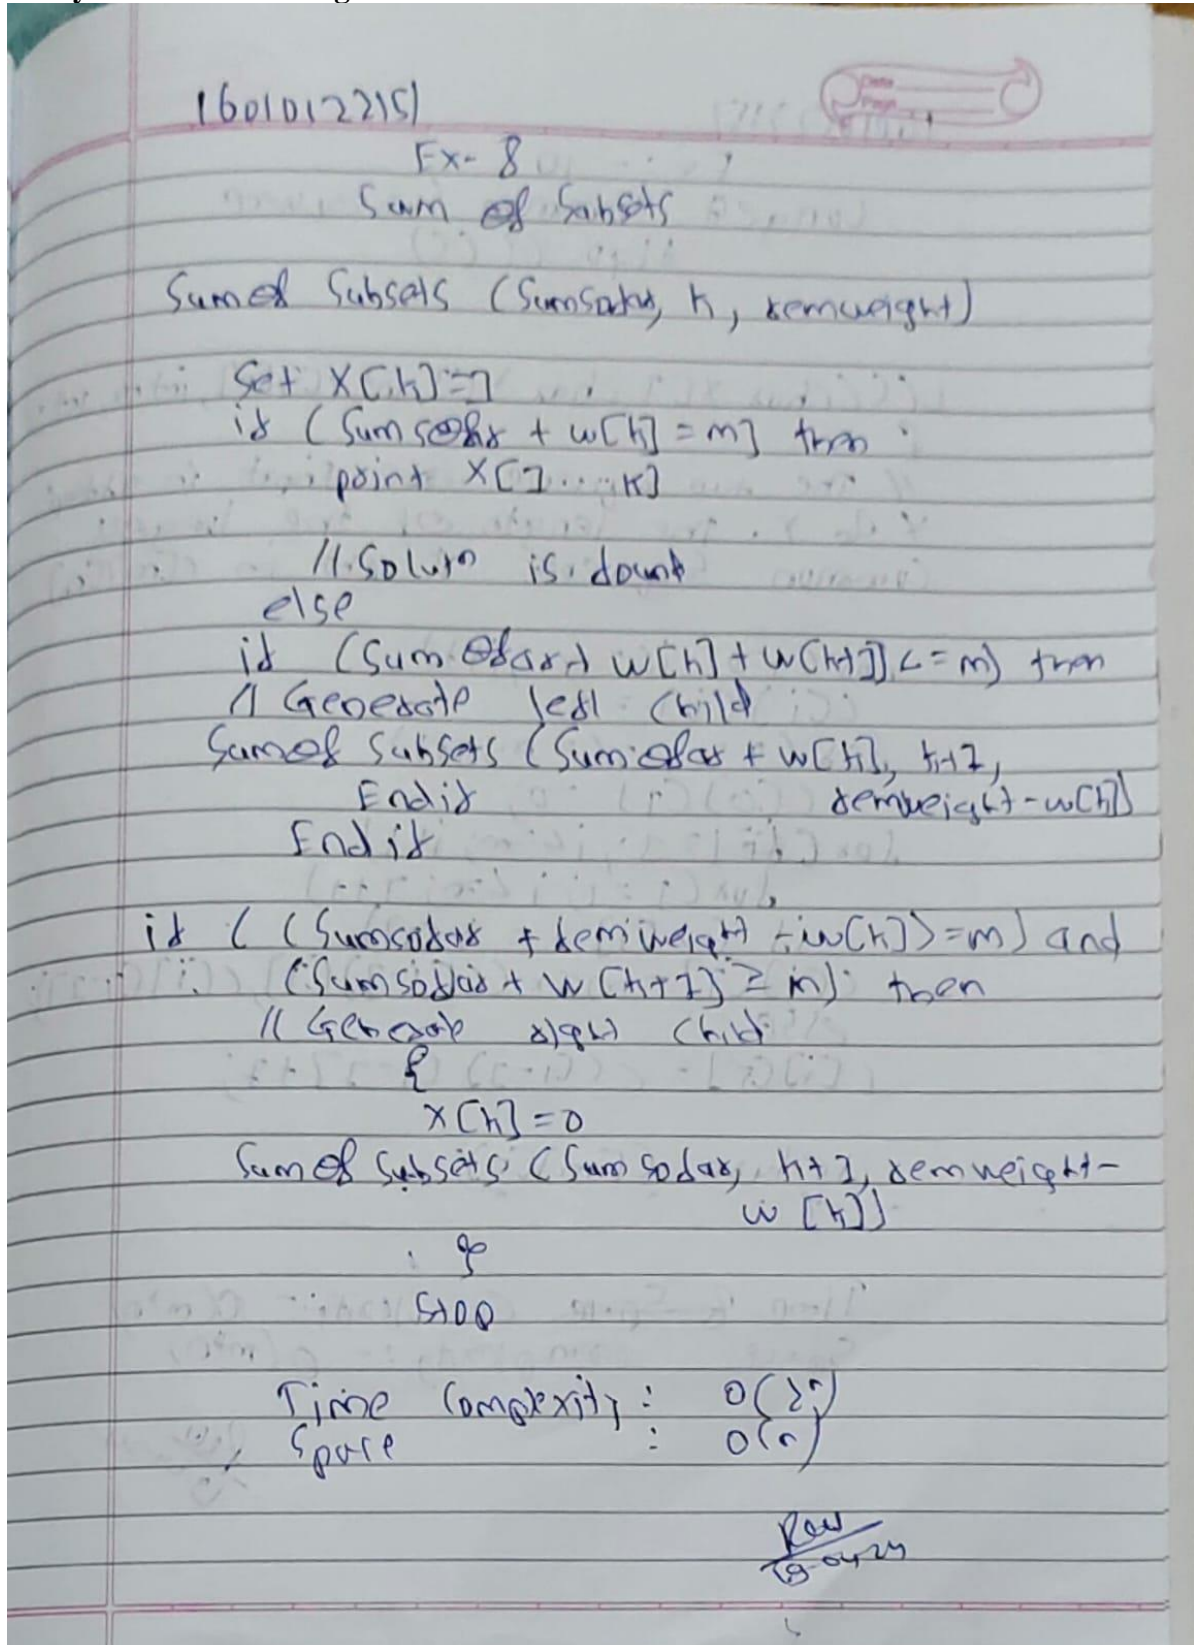 16010122151
Date
Page
Ex- 8
Sum of Subsets
Sumof Subsets (Sumsofar, k, remweight)
Set X[k]=1
if (Sumsofar + w[k] = m] then
print X[1...k]
// Solutn is found
else
if (Sum ofar + w[k] + w[k+1] <= m) then
// Generate left child
Sumof Subsets (Sumofar + w[k], k+1,
remweight - w[k])
Endif
Endif
if ( (Sumsofar + remweight - w[k]) >= m) and
(Sumsofar + w[k+1] ≥ m) then
// Generate right child
{
x[k] = 0
Sumof Subsets (Sum sofar, k+1, remweight-
w[k])
}
Stop
Time Complexity : O(2ⁿ)
Space : O(n)